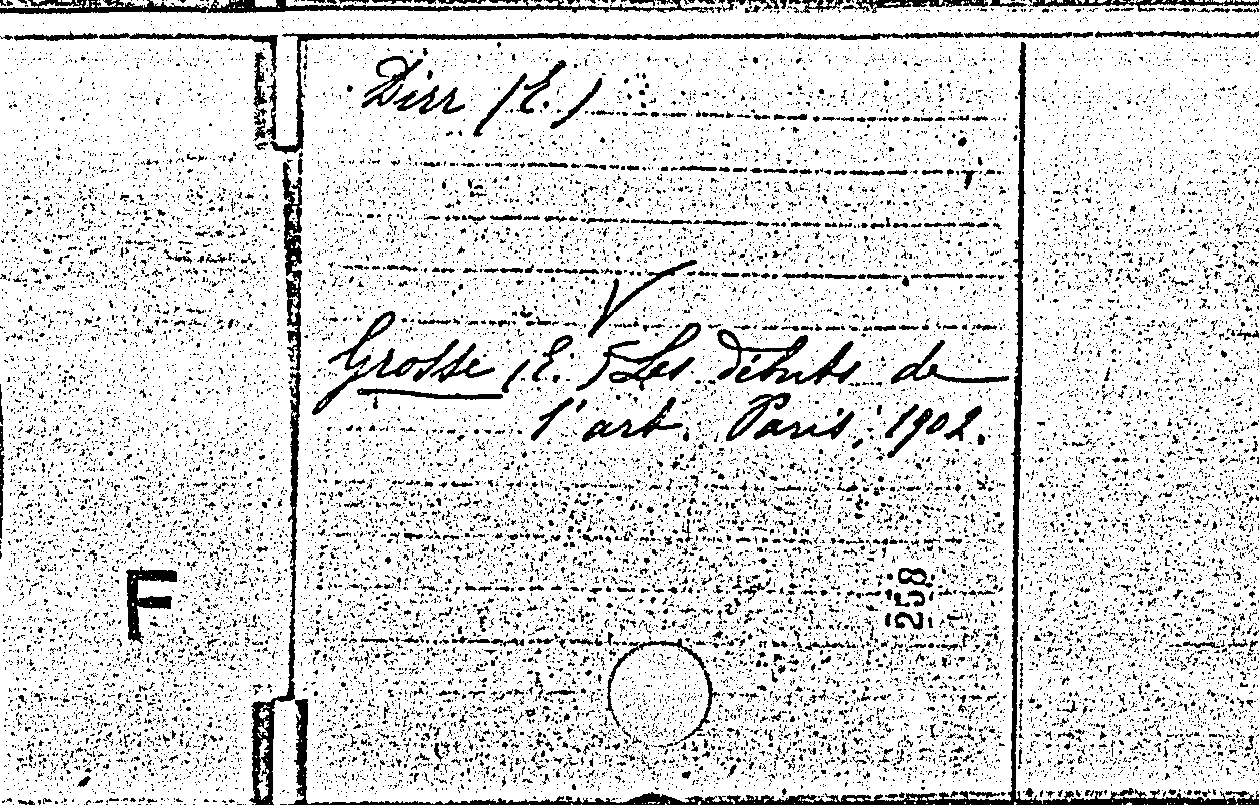 Dirr (E.)
Grosse (E.) Les débuts de
l'art. Paris, 1902.
F
258